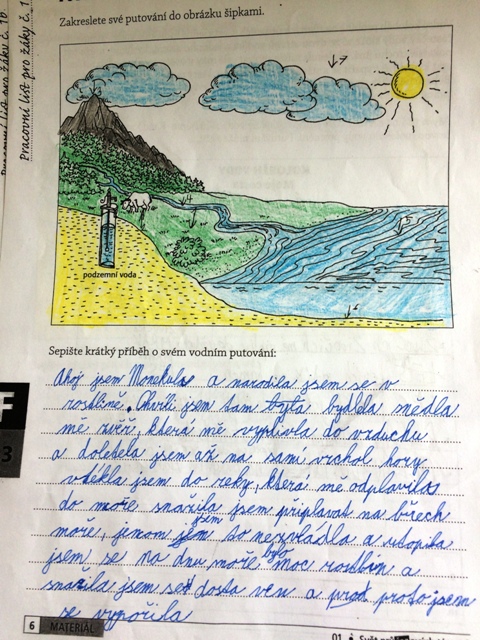 Pracovní list pro žáky č. 10
Pracovní list pro žáky č. 1
Zakreslete své putování do obrázku šipkami.
7
4
5
podzemní voda
6
Sepište krátký příběh o svém vodním putování:
Ahoj jsem Monekula a narodila jsem se v
rostlině. Chvíli jsem tam byla bydlela snědla
mě zvěř, která mě vyplivla do vzduchu
a doletěla jsem až na samí vrchol hory
vtékla jsem do řeky, která mě odplavila
do moře snažila jsem připlavat na břech
moře, jenom jsem to nezvládla a utopila
jsem se na dnu moře bylo moc rostlin a
snažila jsem se dosta ven a proto jsem
se vypořila
F
3
6 MATERIÁL
01 • Svět